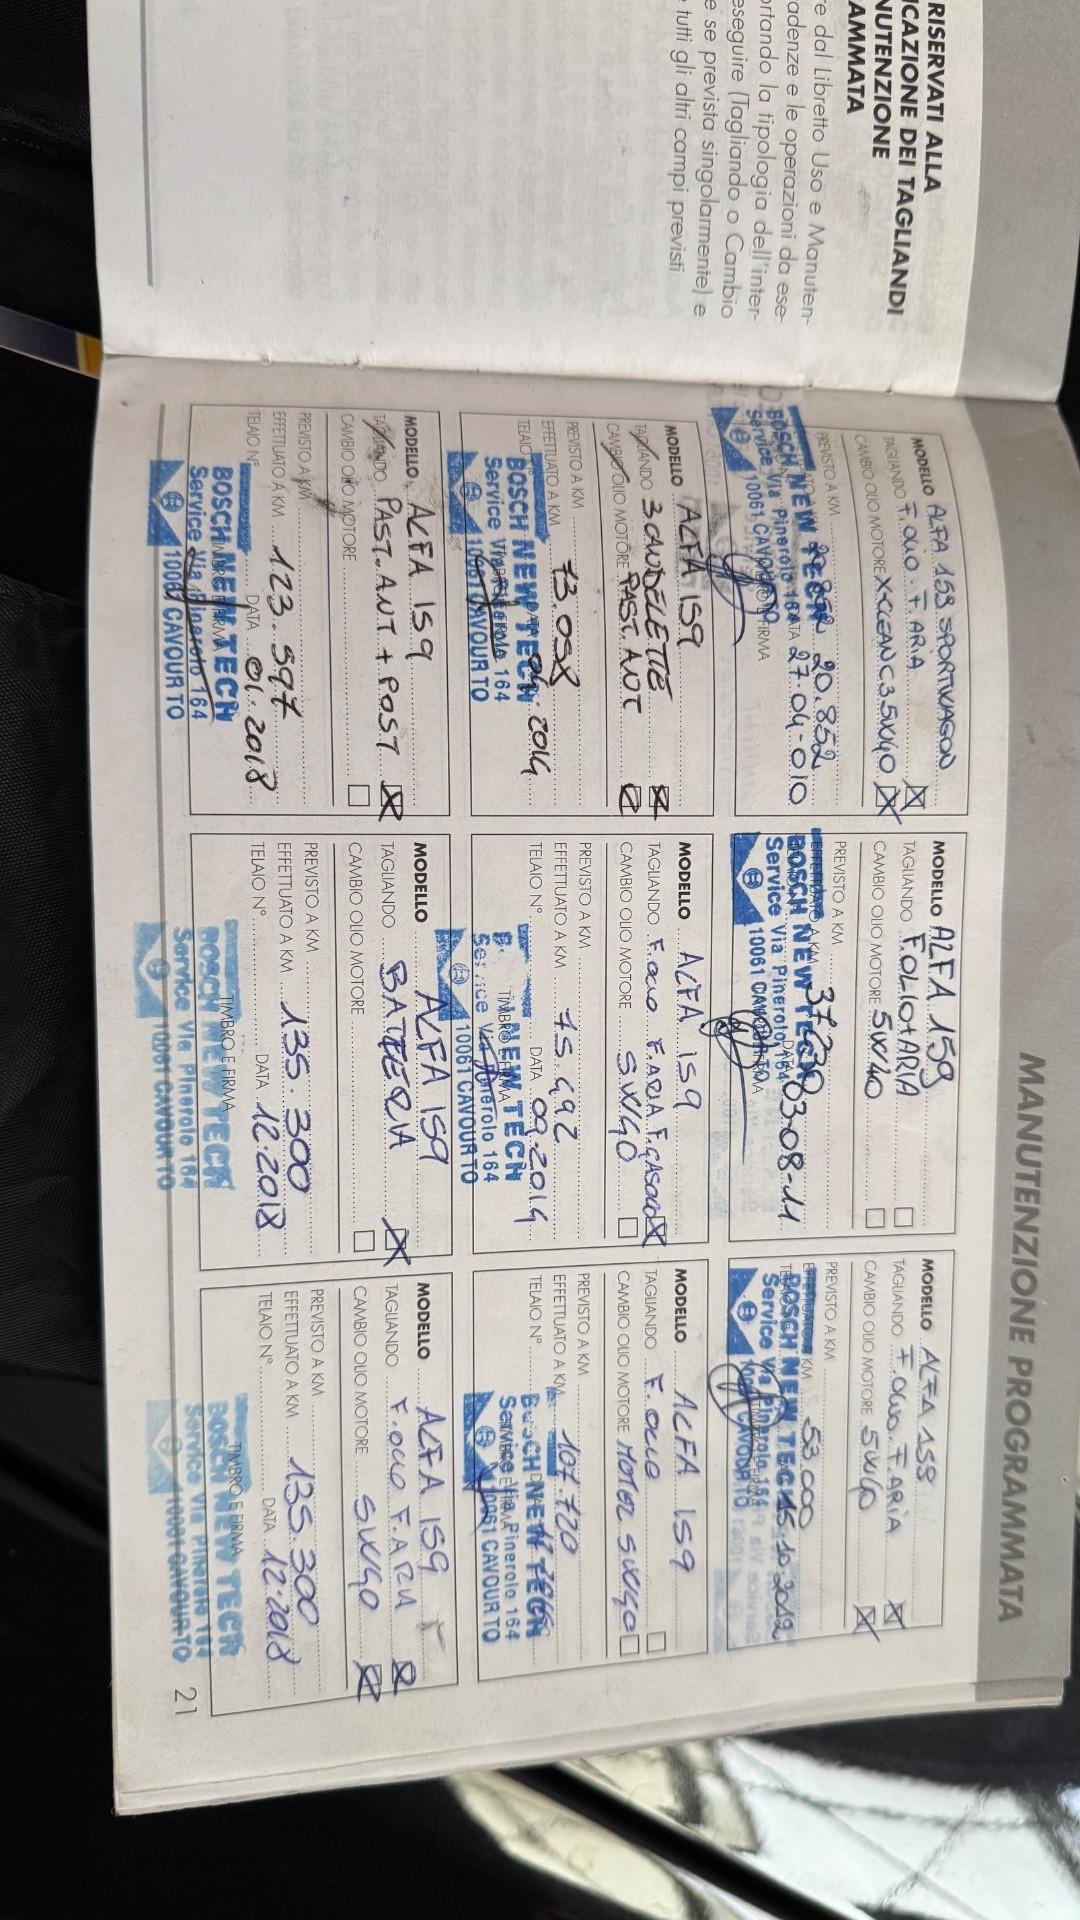 RISERVATI ALLA
ICAZIONE DEI TAGLIANDI
NUTENZIONE
AMMATA
re dal Libretto Uso e Manuten-
adenze e le operazioni da ese-
ortando la tipologia dell'inter-
eseguire (Tagliando o Cambio
e se prevista singolarmente) e
tutti gli altri campi previsti
MANUTENZIONE PROGRAMMATA
MODELLO ALFA 159 SPORTWAGON
TAGLIANDO F.OLIO F.ARIA
CAMBIO OLIO MOTORE X-CLEAN C3 5W40
PREVISTO A KM
20.852
DATA 27-04-010
BOSCH NEW TECH
Service Via Pinerolo 164
10061 CAVOUR TO
MODELLO ALFA 159
TAGLIANDO F.OLIO+ARIA
CAMBIO OLIO MOTORE 5W40
PREVISTO A KM
EFFETTUATO A KM 37230
03-08-11
BOSCH NEW TECH
Service Via Pinerolo 164
10061 CAVOUR TO
MODELLO ALFA 159
TAGLIANDO F.OLIO F.ARIA
CAMBIO OLIO MOTORE 5W40
PREVISTO A KM
EFFETTUATO A KM 53.000
15.10.2012
BOSCH NEW TECH
Service Via Pinerolo 164
10061 CAVOUR TO
MODELLO ALFA 159
TAGLIANDO 3 CANDELETTE
CAMBIO OLIO MOTORE PAST. ANT
PREVISTO A KM
EFFETTUATO A KM 73.058
TELAIO N° 2014
BOSCH NEW TECH
Service Via Pinerolo 164
10061 CAVOUR TO
MODELLO ALFA 159
TAGLIANDO F.OLIO F.ARIA F.GASOLIO
CAMBIO OLIO MOTORE 5W40
PREVISTO A KM
EFFETTUATO A KM 75.492
TELAIO N° DATA 09.2014
TIMBRO E FIRMA
NEW TECH
Service Via Pinerolo 164
10061 CAVOUR TO
MODELLO ALFA 159
TAGLIANDO F.OLIO
CAMBIO OLIO MOTORE MOTUL 5W40
PREVISTO A KM
EFFETTUATO A KM 107.720
TELAIO N°
BOSCH NEW TECH
Service Via Pinerolo 164
10061 CAVOUR TO
MODELLO ALFA 159
TAGLIANDO PAST. ANT + POST
CAMBIO OLIO MOTORE
PREVISTO A KM
EFFETTUATO A KM 123.597
TELAIO N° DATA 01.2018
BOSCH NEW TECH
Service Via Pinerolo 164
10061 CAVOUR TO
MODELLO ALFA 159
TAGLIANDO BATTERIA
CAMBIO OLIO MOTORE
PREVISTO A KM
EFFETTUATO A KM 135.300
TELAIO N° DATA 12.2018
TIMBRO E FIRMA
BOSCH NEW TECH
Service Via Pinerolo 164
10061 CAVOUR TO
MODELLO ALFA 159
TAGLIANDO F.OLIO F.ARIA
CAMBIO OLIO MOTORE 5W40
PREVISTO A KM
EFFETTUATO A KM 135.300
TELAIO N° DATA 12.2018
TIMBRO E FIRMA
BOSCH NEW TECH
Service Via Pinerolo 164
10061 CAVOUR TO
21